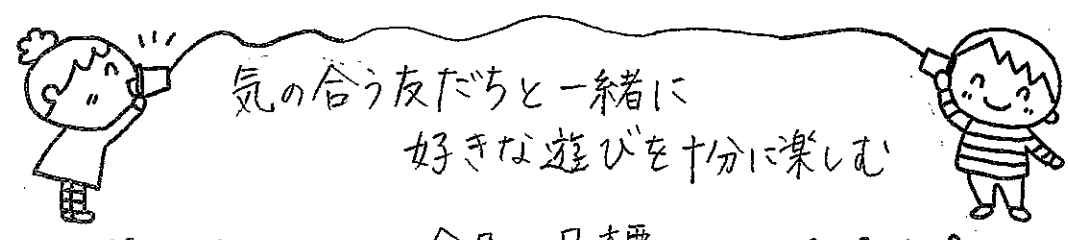 気の合う友だちと一緒に
好きな遊びを十分に楽しむ